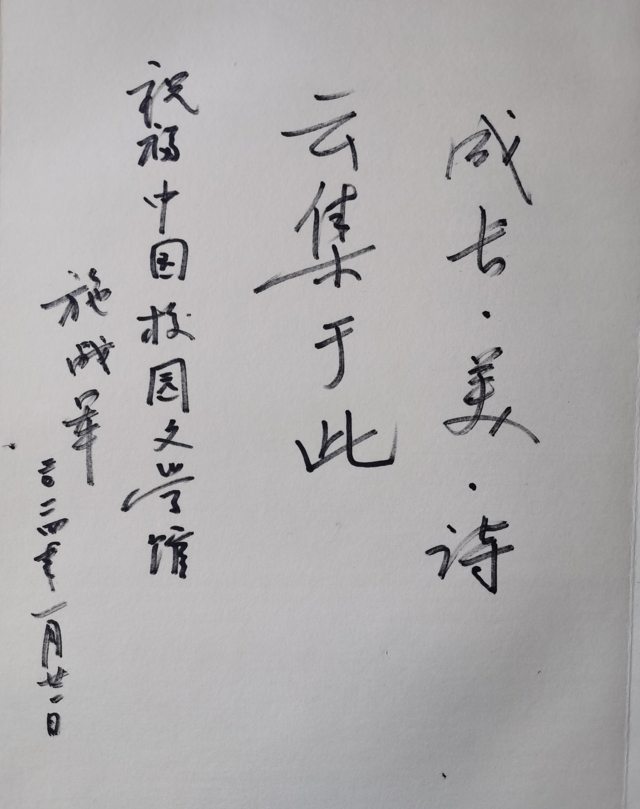 成长·美·诗
云集于此
祝福中国校园文学馆
施战軍
二〇二四年一月廿一日